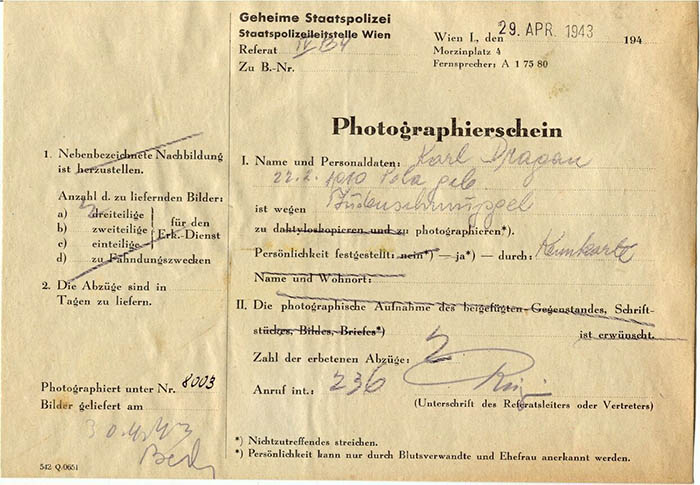 Geheime Staatspolizei
Staatspolizeileitstelle Wien
Referat IV B4
Zu B.-Nr.
Wien I., den 29. APR. 1943 194
Morzinplatz 4
Fernsprecher: A 1 75 80
Photographierschein
1. Nebenbezeichnete Nachbildung
ist herzustellen.
Anzahl d. zu liefernden Bilder:
a) dreiteilige
b) zweiteilige
c) einteilige
für den
Erk.-Dienst
d) zu Fahndungszwecken
2. Die Abzüge sind in
Tagen zu liefern.
Photographiert unter Nr. 8003
Bilder geliefert am
30.4.43
542 Q/0651
I. Name und Personaldaten: Karl Dragan
22.2.1010 Pola geb
ist wegen Judenschmuggel
zu daktyloskopieren und zu photographieren*).
Persönlichkeit festgestellt: nein*) — ja*) — durch: Kennkarte
Name und Wohnort:
II. Die photographische Aufnahme des beigefügten Gegenstandes, Schrift-
stückes, Bildes, Briefes*) ist erwünscht.
Zahl der erbetenen Abzüge: 2
Anruf int.: 236
(Unterschrift des Referatsleiters oder Vertreters)
*) Nichtzutreffendes streichen.
*) Persönlichkeit kann nur durch Blutsverwandte und Ehefrau anerkannt werden.